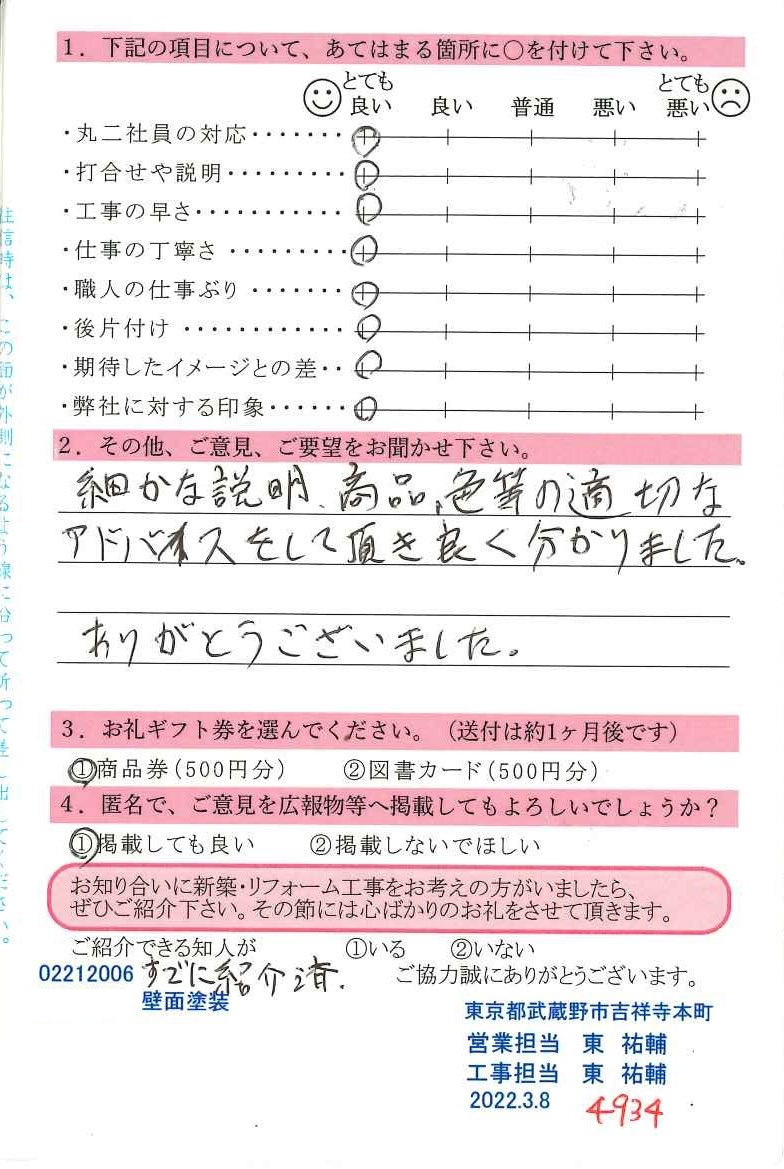 1．下記の項目について、あてはまる箇所に○を付けて下さい。
とても良い 良い 普通 悪い とても悪い
・丸二社員の対応・・・・・・・
・打合せや説明・・・・・・・・・
・工事の早さ・・・・・・・・・・・
・仕事の丁寧さ・・・・・・・・・
・職人の仕事ぶり・・・・・・・
・後片付け・・・・・・・・・・・・
・期待したイメージとの差・・
・弊社に対する印象・・・・・・
2．その他、ご意見、ご要望をお聞かせ下さい。
細かな説明、商品、色等の適切な
アドバイスをして頂き良く分かりました。
ありがとうございました。
3．お礼ギフト券を選んでください。（送付は約1ヶ月後です）
①商品券（500円分） ②図書カード（500円分）
4．匿名で、ご意見を広報物等へ掲載してもよろしいでしょうか？
①掲載しても良い ②掲載しないでほしい
お知り合いに新築・リフォーム工事をお考えの方がいましたら、
ぜひご紹介下さい。その節には心ばかりのお礼をさせて頂きます。
ご紹介できる知人が ①いる ②いない
02212006 すでに紹介済. ご協力誠にありがとうございます。
壁面塗装
東京都武蔵野市吉祥寺本町
営業担当 東 祐輔
工事担当 東 祐輔
2022.3.8 4934